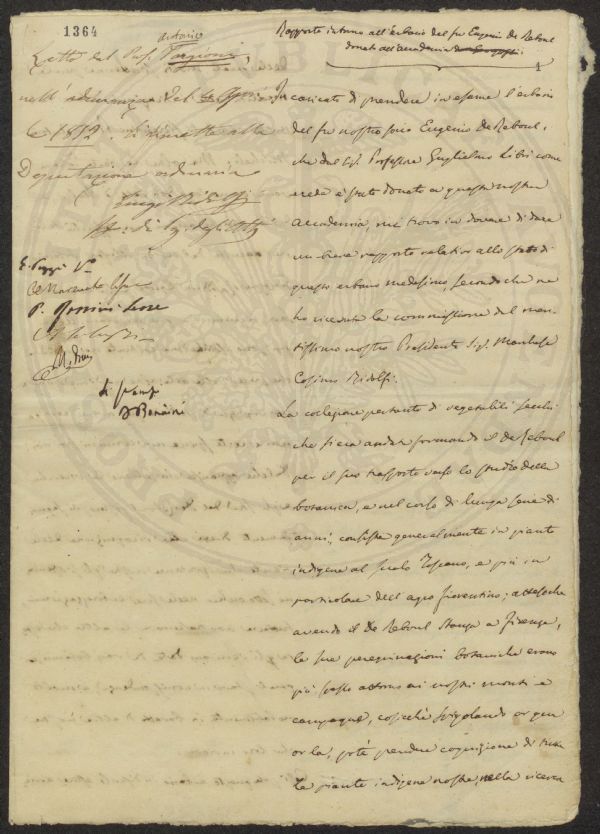 1364
Rapporto intorno all'erbario del fu Eugenio de Reboul
donato all'accademia
1
Letto dal Prof. Antonio Targioni
nell'adunanza del
le 1852.
Deputazione ordinaria
Luigi Ridolfi
E. Poggi
P.
di stamp
Bonaini
Incaricato di prendere in esame l'erbario
del fu nostro socio Eugenio de Reboul,
che dal Sig. Professore Guglielmo Libri come
erede è stato donato a questa nostra
Accademia, mi trovo in dovere di dare
un breve rapporto relativo allo stato di
questo erbario medesimo, secondo che ne
ho ricevuta la commissione dal meri-
tissimo nostro Presidente Sig. Marchese
Cosimo Ridolfi.
La collezione pertanto di vegetabili secchi
che si era andata formando il de Reboul
per il suo trasporto verso lo studio della
botanica, e nel corso di lunga serie di
anni, consiste generalmente in piante
indigene al suolo Toscano, e più in
particolare dell'agro fiorentino; attesoche
avendo il De Reboul stanza a Firenze,
le sue peregrinazioni botaniche erano
più spesso attorno ai nostri monti e
campagne, cosicchè spigolando or qua
or la, potè prendere cognizione di tutte
le piante indigene nostre, nella ricerca